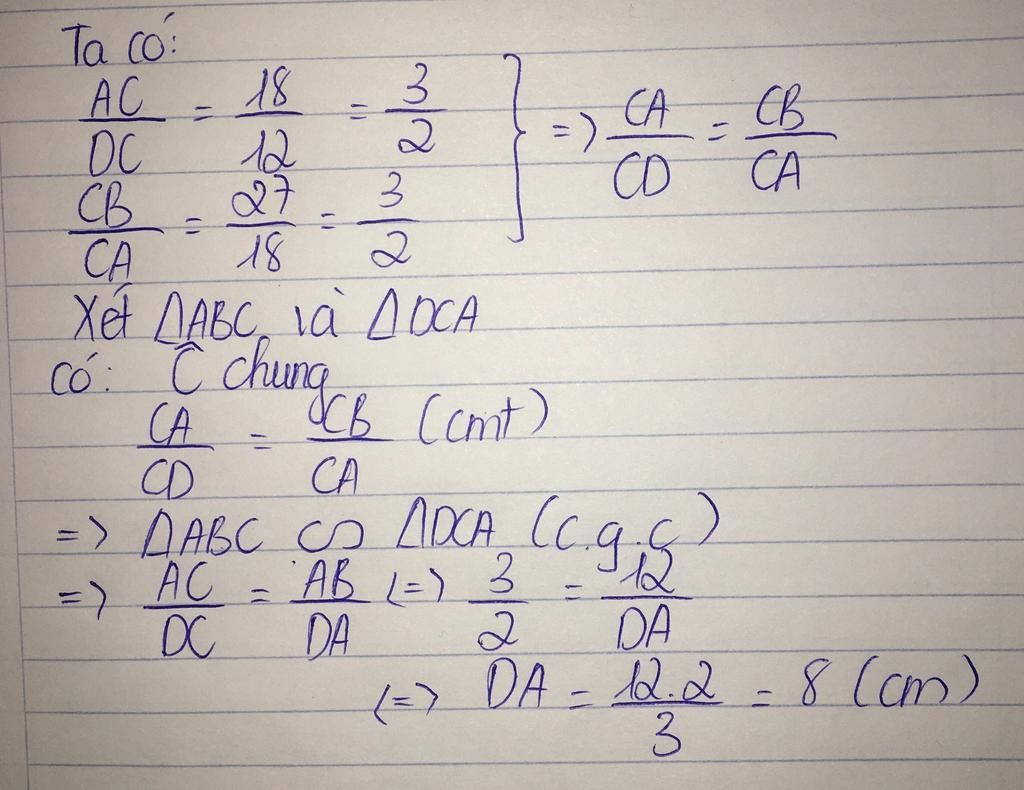 Ta có:
AC/DC = 18/12 = 3/2
CB/CA = 27/18 = 3/2
} => CA/CD = CB/CA
Xét ΔABC và ΔDCA
có: Ĉ chung
CA/CD = CB/CA (cmt)
=> ΔABC ∽ ΔDCA (c.g.c)
=> AC/DC = AB/DA <=> 3/2 = 12/DA
<=> DA = 12.2/3 = 8 (cm)